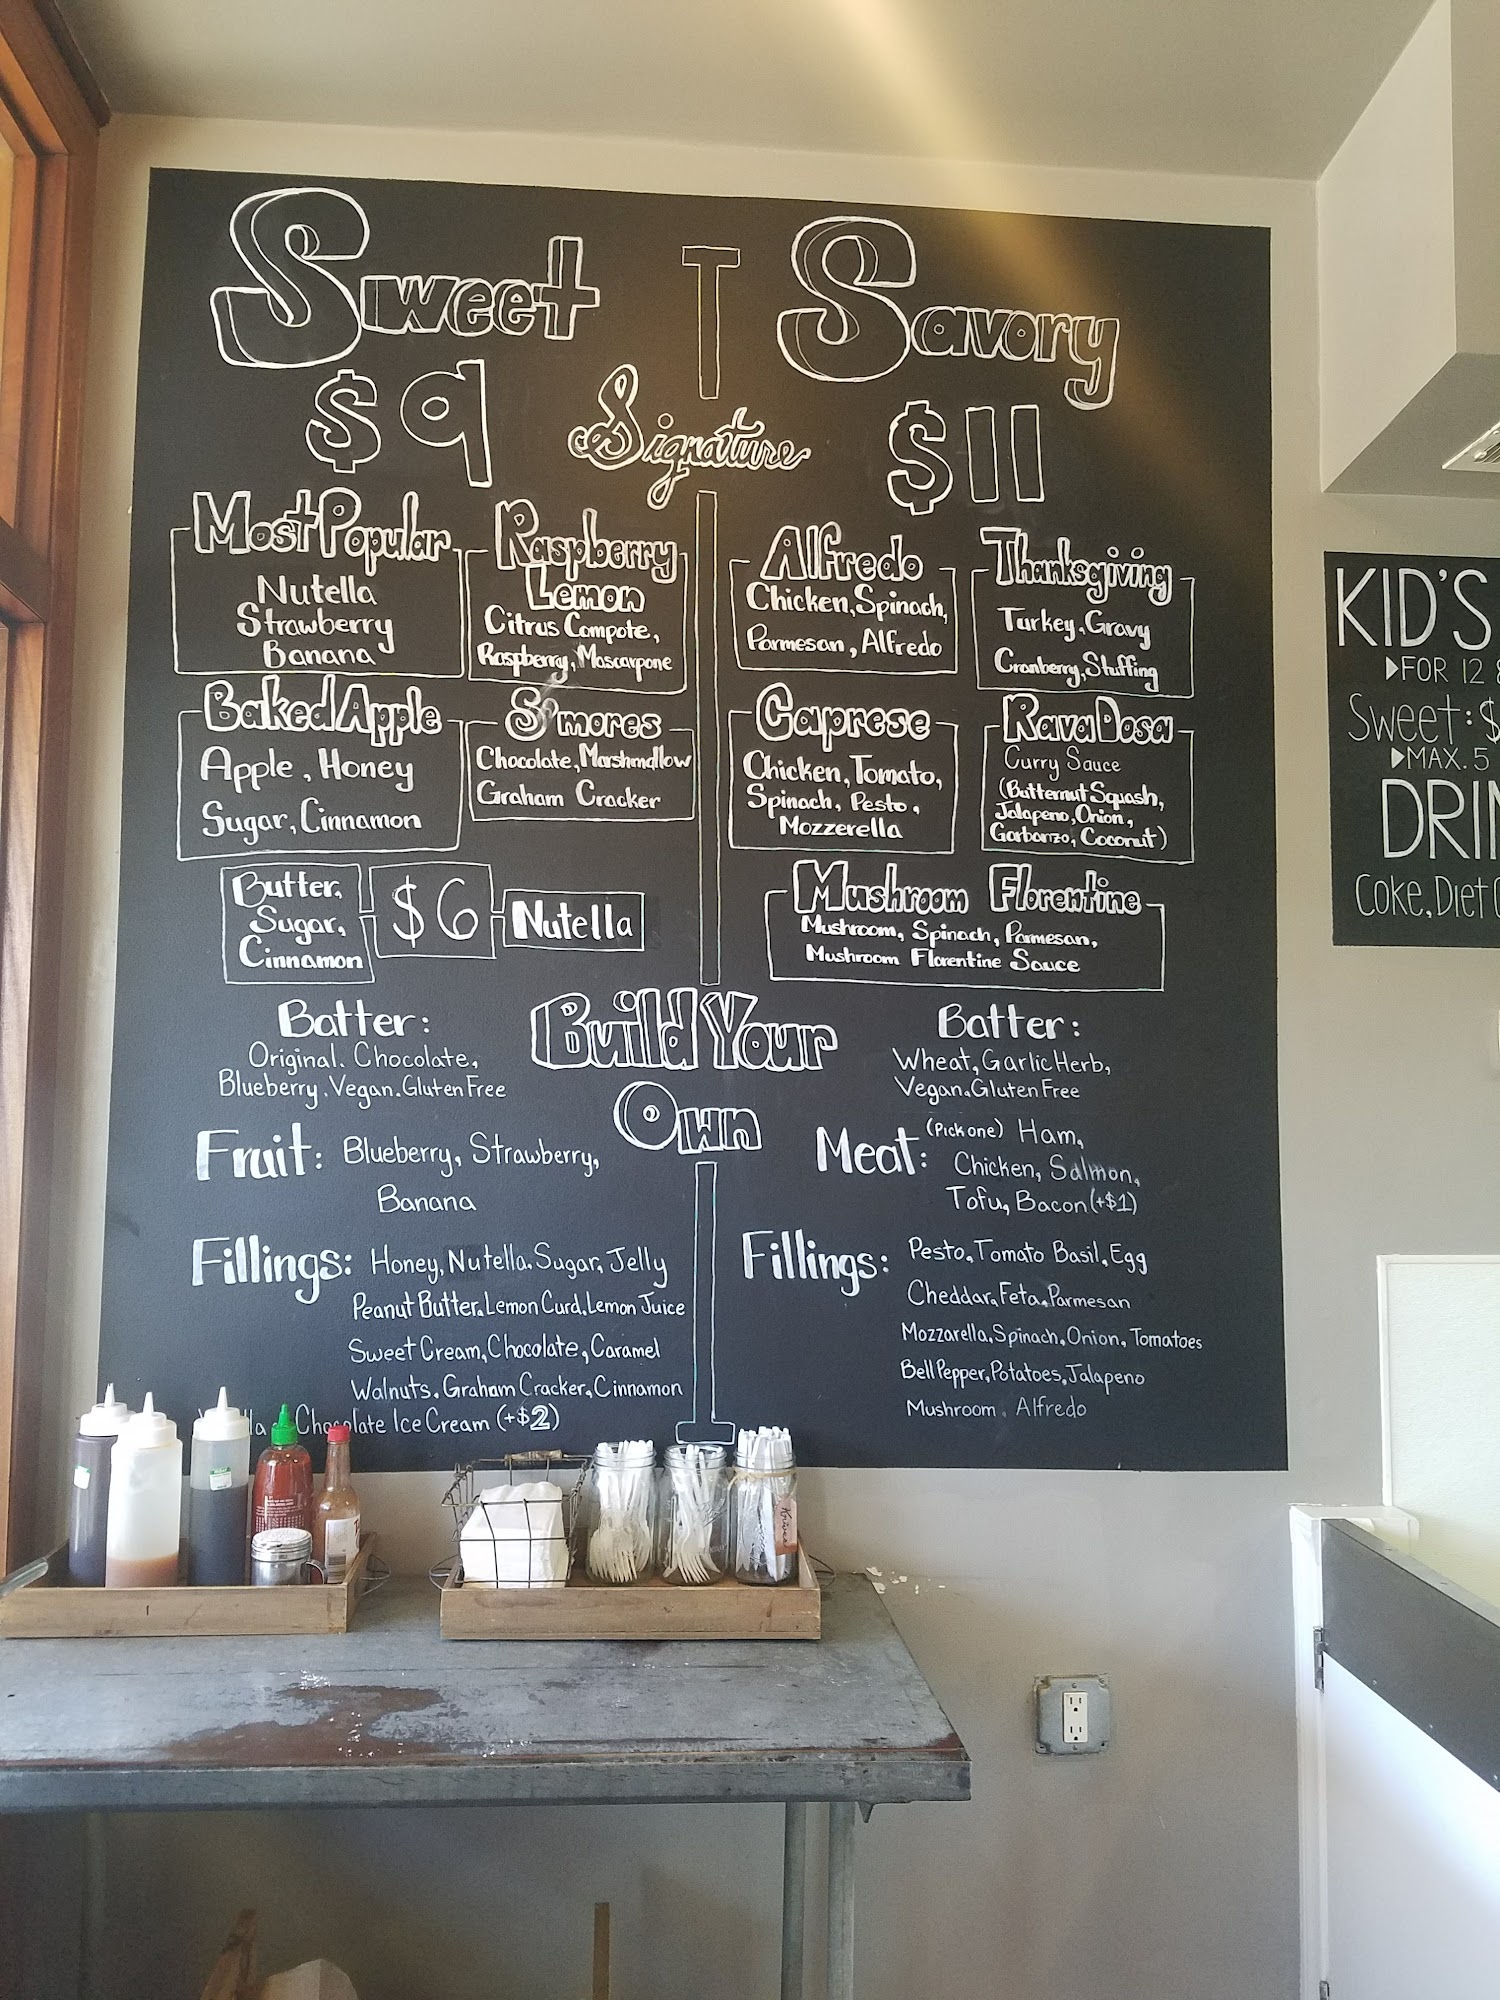 Sweet
Savory
$9
Signature
$11
Most Popular
Nutella
Strawberry
Banana
Raspberry
Lemon
Citrus Compote,
Raspberry, Mascarpone
Baked Apple
Apple, Honey
Sugar, Cinnamon
S'mores
Chocolate, Marshmallow
Graham Cracker
Butter,
Sugar,
Cinnamon
$6
Nutella
Alfredo
Chicken, Spinach,
Parmesan, Alfredo
Thanksgiving
Turkey, Gravy
Cranberry, Stuffing
Caprese
Chicken, Tomato,
Spinach, Pesto,
Mozzerella
Rava Dosa
Curry Sauce
(Butternut Squash,
Jalapeno, Onion,
Garbanzo, Coconut)
Mushroom Florentine
Mushroom, Spinach, Parmesan,
Mushroom Florentine Sauce
Build Your
Own
Batter:
Original. Chocolate,
Blueberry. Vegan. Gluten Free
Fruit: Blueberry, Strawberry,
Banana
Fillings: Honey, Nutella. Sugar, Jelly
Peanut Butter. Lemon Curd. Lemon Juice
Sweet Cream, Chocolate, Caramel
Walnuts. Graham Cracker, Cinnamon
Chocolate Ice Cream (+$2)
Batter:
Wheat, Garlic Herb,
Vegan. Gluten Free
Meat: (Pick one) Ham,
Chicken, Salmon,
Tofu, Bacon (+$1)
Fillings: Pesto, Tomato Basil, Egg
Cheddar, Feta, Parmesan
Mozzarella, Spinach, Onion, Tomatoes
Bell Pepper, Potatoes, Jalapeno
Mushroom, Alfredo
KID'S
FOR 12
Sweet: $
MAX. 5
DRIN
Coke, Diet
Knives